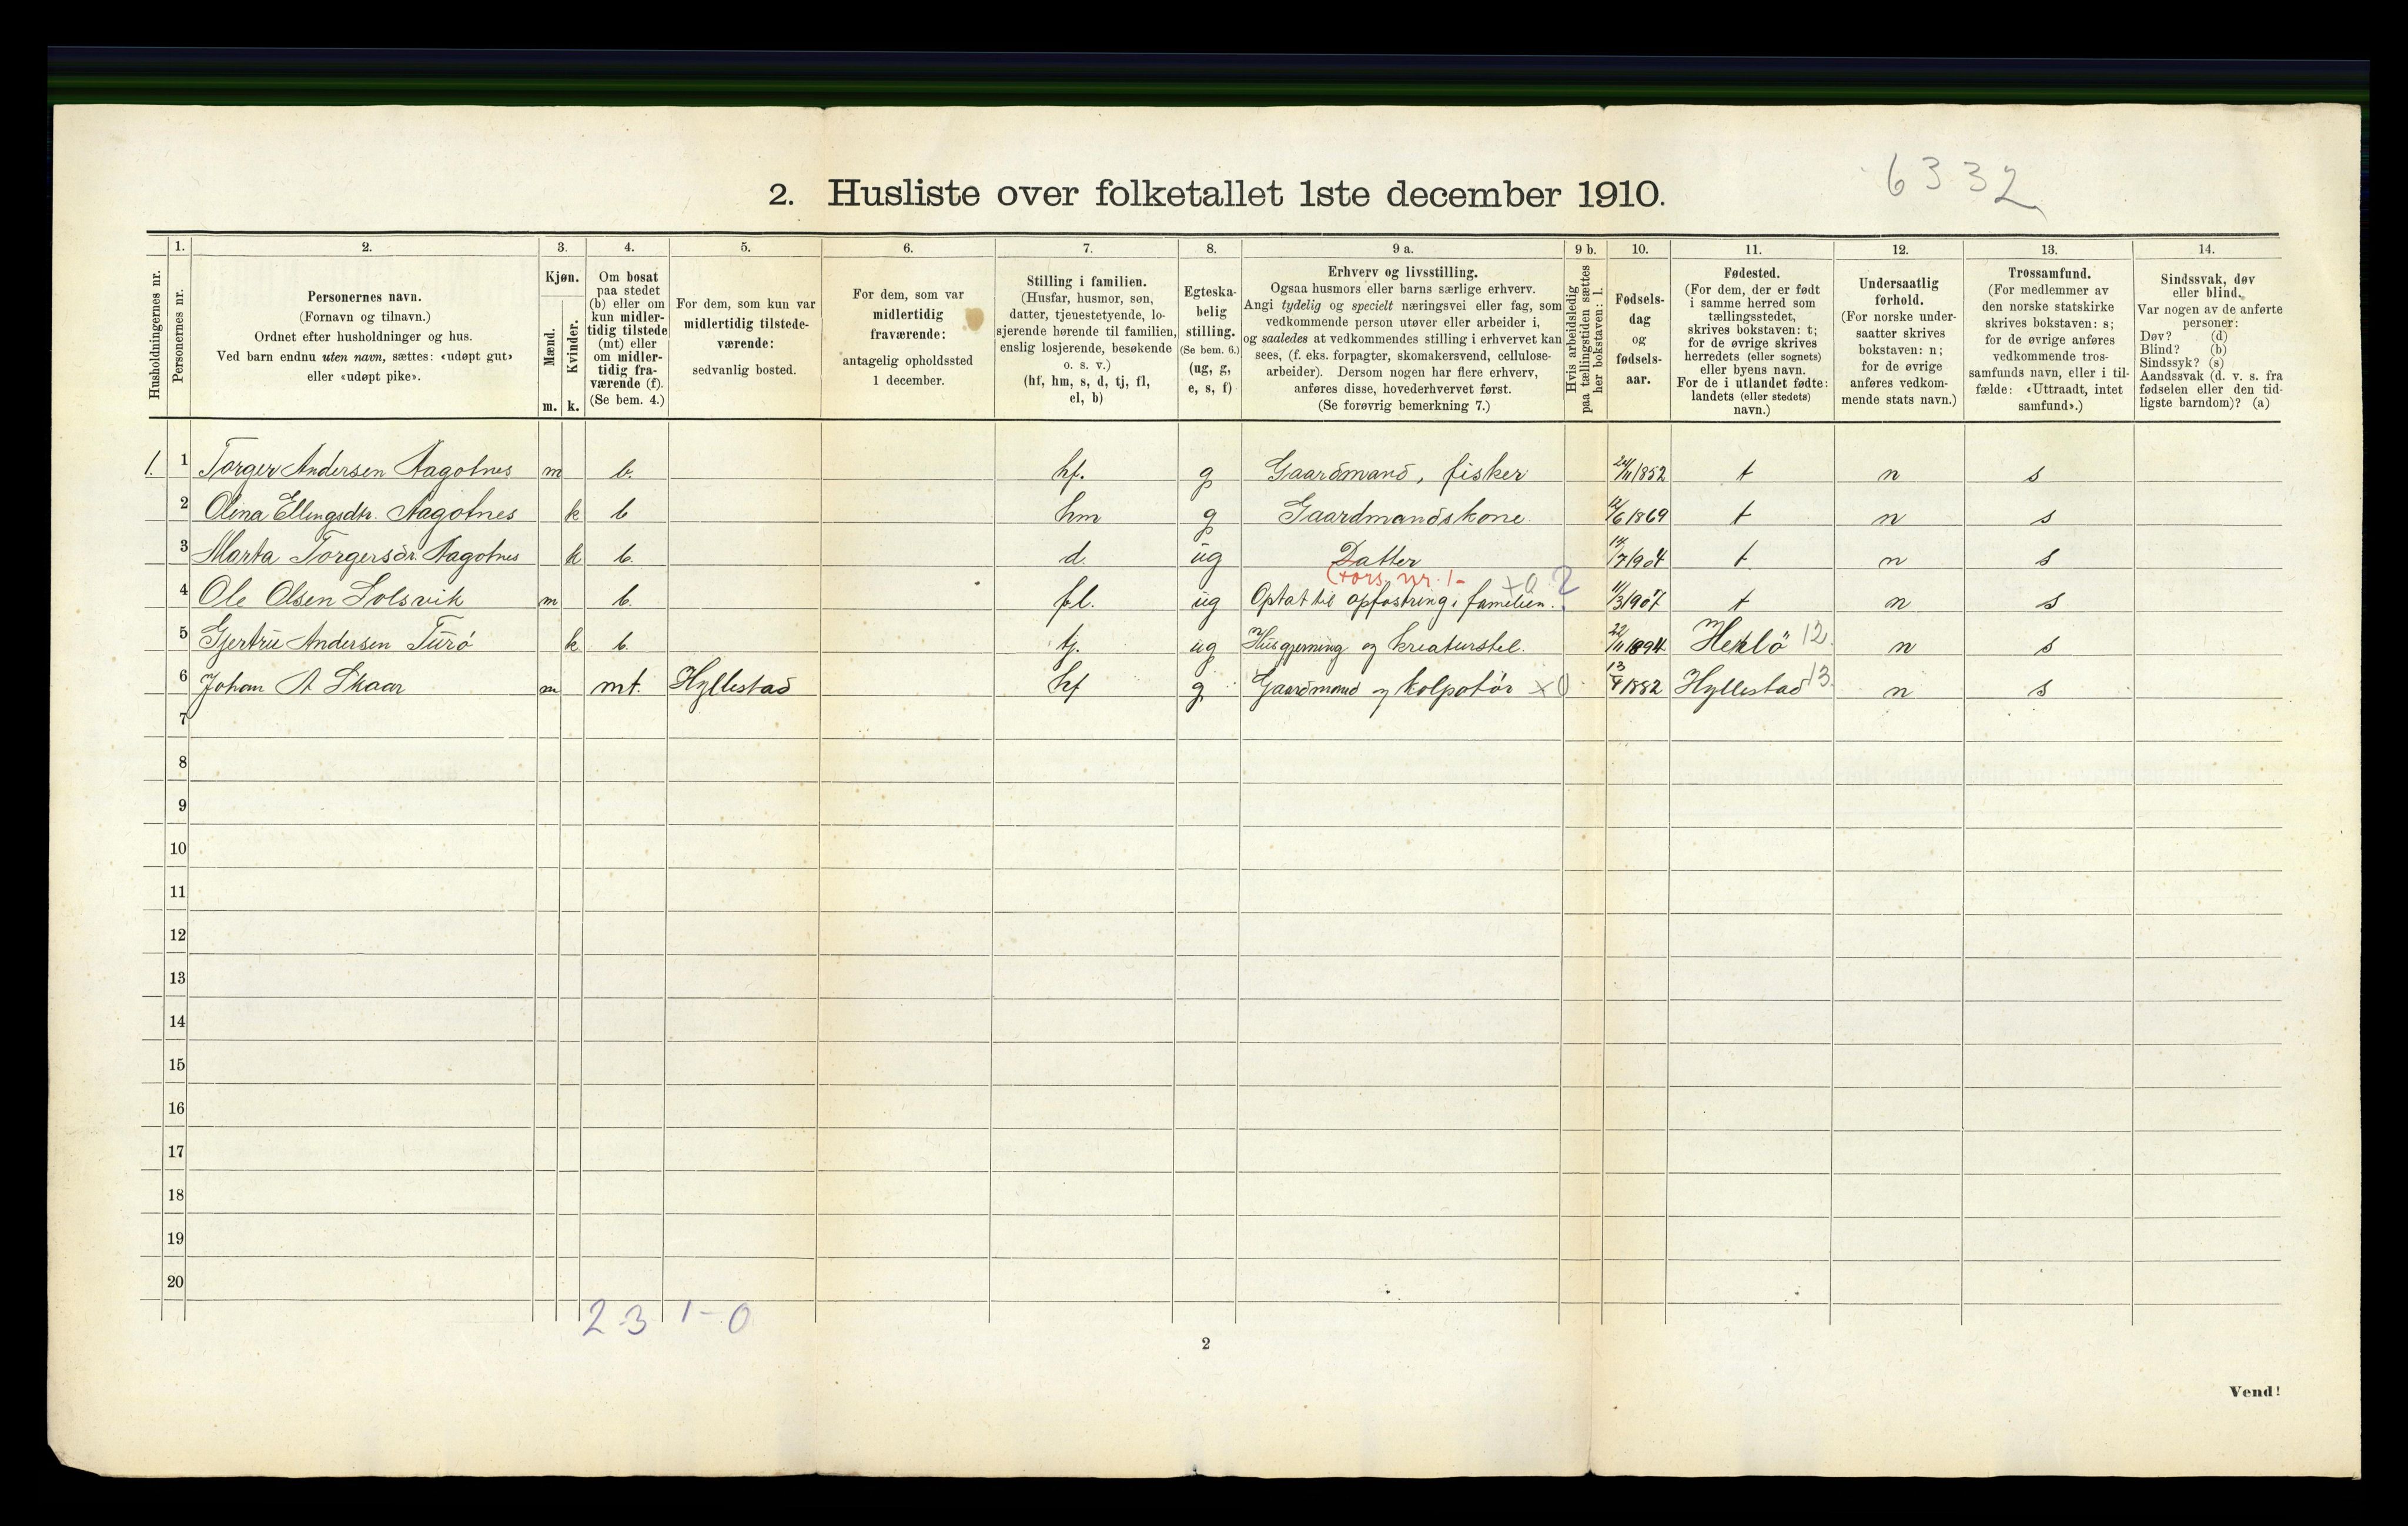 6332
2. Husliste over folketallet 1ste december 1910.
Husholdningernes nr.
1.
Personernes nr.
2.
Personernes navn.
(Fornavn og tilnavn.)
Ordnet efter husholdninger og hus.
Ved barn endnu uten navn, sættes: «udøpt gut»
eller «udøpt pike».
3.
Kjøn.
Mænd.
Kvinder.
m. k.
4.
Om bosat
paa stedet
(b) eller om
kun midler-
tidig tilstede
(mt) eller
om midler-
tidig fra-
værende (f).
(Se bem. 4.)
5.
For dem, som kun var
midlertidig tilstede-
værende:
sedvanlig bosted.
6.
For dem, som var
midlertidig
fraværende:
antagelig opholdssted
1 december.
7.
Stilling i familien.
(Husfar, husmor, søn,
datter, tjenestetyende, lo-
sjerende hørende til familien,
enslig losjerende, besøkende
o. s. v.)
(hf, hm, s, d, tj, fl,
el, b)
8.
Egteska-
belig
stilling.
(Se bem. 6.)
(ug, g,
e, s, f)
9 a.
Erhverv og livsstilling.
Ogsaa husmors eller barns særlige erhverv.
Angi tydelig og specielt næringsvei eller fag, som
vedkommende person utøver eller arbeider i,
og saaledes at vedkommendes stilling i erhvervet kan
sees, (f. eks. forpagter, skomakersvend, cellulose-
arbeider). Dersom nogen har flere erhverv,
anføres disse, hovederhvervet først.
(Se forøvrig bemerkning 7.)
9 b.
Hvis arbeidsledig
paa tællingstiden sættes
her bokstaven: l.
10.
Fødsels-
dag
og
fødsels-
aar.
11.
Fødested.
(For dem, der er født
i samme herred som
tællingsstedet,
skrives bokstaven: t;
for de øvrige skrives
herredets (eller sognets)
eller byens navn.
For de i utlandet fødte:
landets (eller stedets)
navn.)
12.
Undersaatlig
forhold.
(For norske under-
saatter skrives
bokstaven: n;
for de øvrige
anføres vedkom-
mende stats navn.)
13.
Trossamfund.
(For medlemmer av
den norske statskirke
skrives bokstaven: s;
for de øvrige anføres
vedkommende tros-
samfunds navn, eller i til-
fælde: «Uttraadt, intet
samfund».)
14.
Sindssvak, døv
eller blind.
Var nogen av de anførte
personer:
Døv? (d)
Blind? (b)
Sindssyk? (s)
Aandssvak (d. v. s. fra
fødselen eller den tid-
ligste barndom)? (a)
1. 1 Torger Andersen Aagotnes m b. hf. g Gaardmand, fisker 24/11 1852 t n s
2 Olina Ellingsdtr. Aagotnes k b hm g Gaardmandskone. 12/6 1869 t n s
3 Marta Torgersdr. Aagotnes k b. d. ug Datter 14/7 1904 t n s
4 Ole Olsen Solsvik m b. fl. ug Optat til opfostring i familien. 11/3 1907 t n s
5 Gjertru Andersen Turö k b. tj. ug Husgjerning og kreaturstel. 22/11 1894 12 n s
6 Johan A Skaar m mt. Hyllestad hf g Gaardmand og kolpotör x0 13/4 1882 Hyllestad 13 n s
7
8
9
10
11
12
13
14
15
16
17
18
19
20
2 3 1-0
2
Vend!